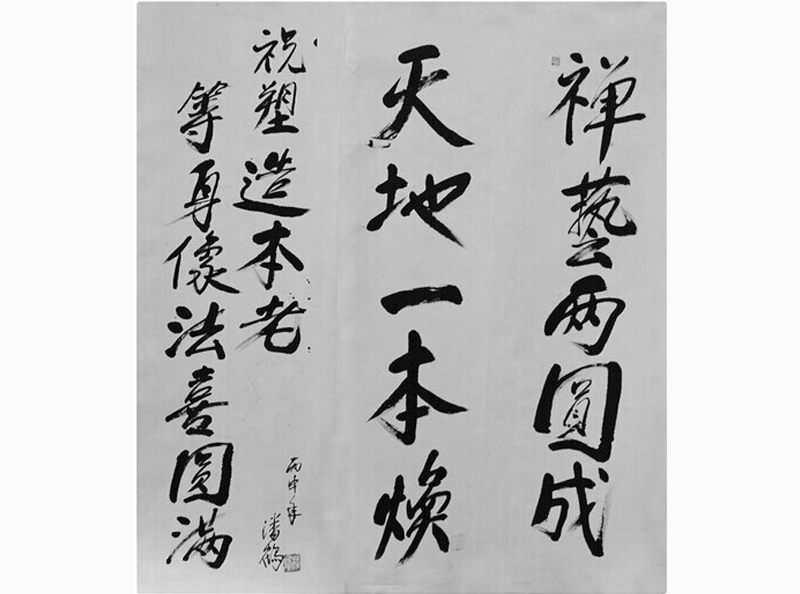 禅藝两圓成
天地一本煥
祝塑造本老
等身像法喜圓满
丙申年
潘鹤